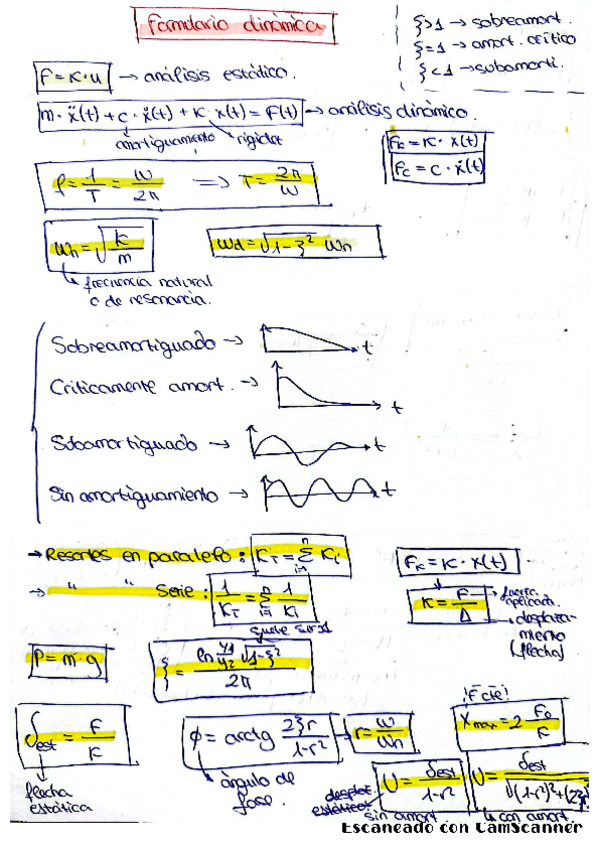 Formulario dinámica
ξ>1 → sobreamort.
ξ=1 → amort. crítico
ξ<1 → subamorti.
F=K·u → análisis estático.
m·ẍ(t)+c·ẋ(t)+K·x(t)=F(t) → análisis dinámico.
amortiguamiento rigidez
Fk=K·x(t)
Fc=c·ẋ(t)
f=1/T=ω/2π ⇒ T=2π/ω
ωn=√(K/m)
ωd=√(1-ξ²) ωn
frecuencia natural
o de resonancia.
Sobreamortiguado → t
Criticamente amort. → t
Subamortiguado → t
Sin amortiguamiento → t
→ Resortes en paralelo: KT=Σ(i=1, n) Ki
→ " " Serie: 1/KT=Σ(i=1, n) 1/Ki
Fk=K·x(t)
K=F/Δ
fuerza
aplicada.
desplaza-
miento
(flecha)
P=m·g
suele ser 1
ξ=ln(y1/y2)√(1-ξ²)/2π
δest=F/K
flecha
estática
φ=arctg 2ξr/(1-r²)
ángulo de
fase.
r=ω/ωn
¡F cte!
Xmax=2 F0/F
desplaz.
estático
U=δest/(1-r²)
sin amort.
U=δest/√((1-r²)²+(2ξr
con amort.
Escaneado con CamScanner